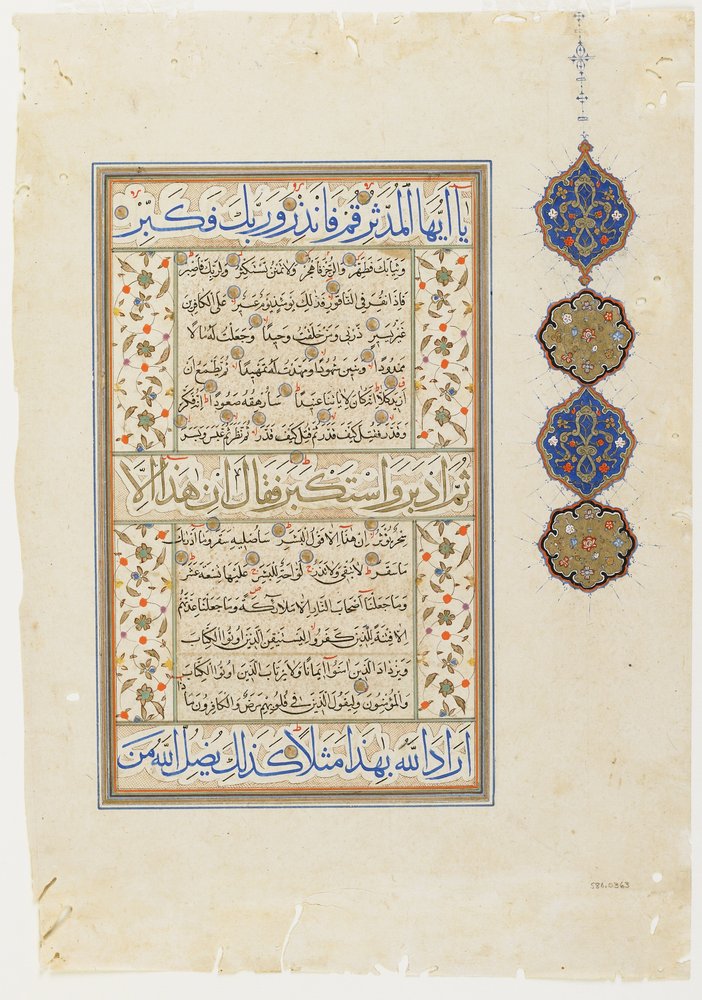 يا ايها المدثر قم فانذر وربك فكبر
وثيابك فطهر والرجز فاهجر ولا تمنن تستكثر ولربك فاصبر
فاذا نقر في الناقور فذلك يومئذ يوم عسير على الكافرين
غير يسير ذرني ومن خلقت وحيدا وجعلت له مالا
ممدودا وبنين شهودا ومهدت له تمهيدا ثم يطمع ان
ازيد كلا انه كان لاياتنا عنيدا سارهقه صعودا انه فكر
وقدر فقتل كيف قدر ثم قتل كيف قدر ثم نظر ثم عبس وبسر
ثم ادبر واستكبر فقال ان هذا الا
سحر يؤثر ان هذا الا قول البشر ساصليه سقر وما ادريك
ما سقر لا تبقي ولا تذر لواحة للبشر عليها تسعة عشر
وما جعلنا اصحاب النار الا ملائكة وما جعلنا عدتهم
الا فتنة للذين كفروا ليستيقن الذين اوتوا الكتاب
ويزداد الذين امنوا ايمانا ولا يرتاب الذين اوتوا الكتاب
والمؤمنون وليقول الذين في قلوبهم مرض والكافرون ماذا
اراد الله بهذا مثلا كذلك يضل الله من
586.0363